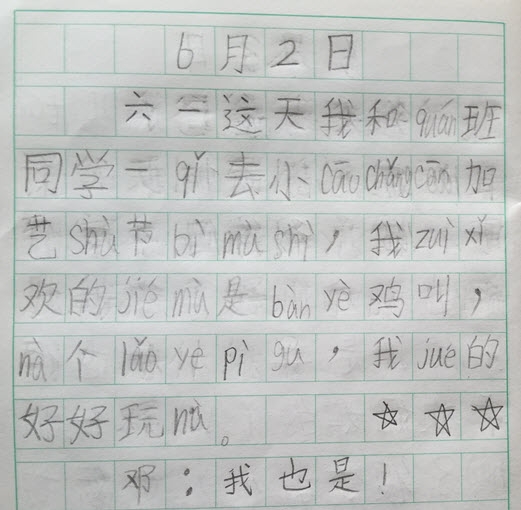 6月2日
六一这天我和quán班
同学一qǐ去小cāochǎngcān加
艺shù节bìmùshì，我zuìxǐ
欢的jiémù是bànyè鸡叫，
nà个lǎoyépìgu，我jué的
好好玩nà。☆☆☆
邓：我也是！